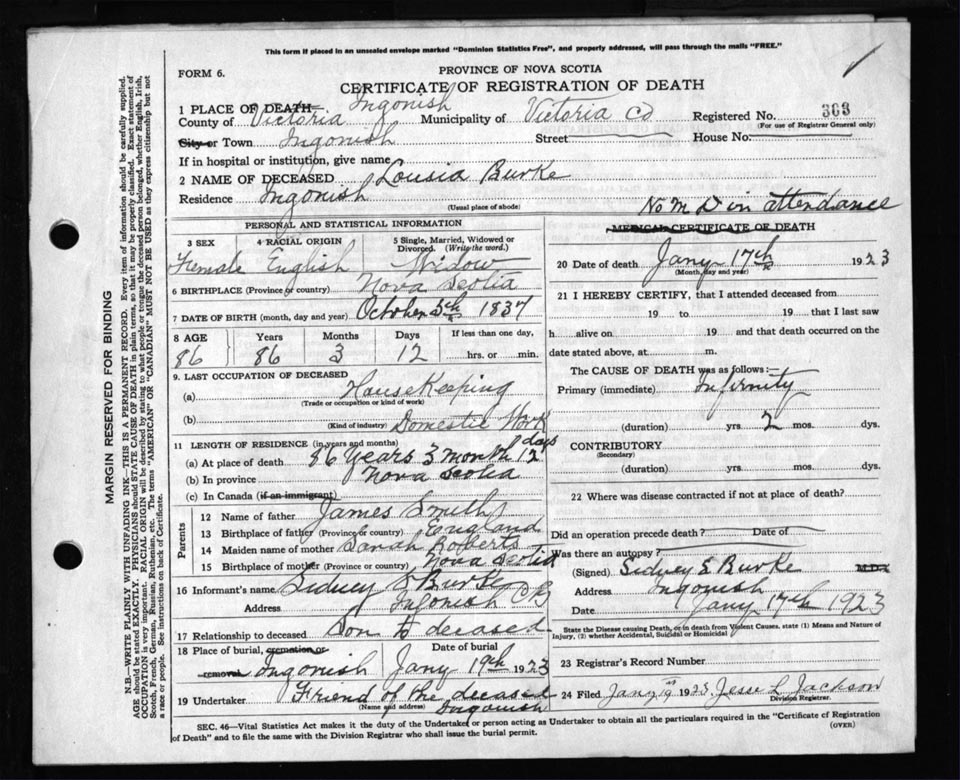 This form if placed in an unsealed envelope marked "Dominion Statistics Free", and properly addressed, will pass through the mails "FREE."
FORM 6.
PROVINCE OF NOVA SCOTIA
CERTIFICATE OF REGISTRATION OF DEATH
1 PLACE OF DEATH Ingonish
County of Victoria Municipality of Victoria Co Registered No. 303
(For use of Registrar General only)
City or Town Ingonish Street House No.
If in hospital or institution, give name
2 NAME OF DECEASED Lousia Burke
Residence Ingonish
(Usual place of abode)
No M D in attendance
PERSONAL AND STATISTICAL INFORMATION
3 SEX 4 RACIAL ORIGIN 5 Single, Married, Widowed or Divorced. (Write the word.)
Female English Widow
6 BIRTHPLACE (Province or country) Nova Scotia
7 DATE OF BIRTH (month, day and year) October 5th 1837
8 AGE Years Months Days If less than one day,
86 86 3 12 hrs. or min.
9. LAST OCCUPATION OF DECEASED
(a) House Keeping
(Trade or occupation or kind of work)
(b) Domestic Work
(Kind of industry)
11 LENGTH OF RESIDENCE (in years and months)
(a) At place of death 86 Years 3 month 12 days
(b) In province Nova Scotia
(c) In Canada (if an immigrant)
Parents
12 Name of father James Smith
13 Birthplace of father (Province or country) England
14 Maiden name of mother Sarah Roberts
15 Birthplace of mother (Province or country) Nova Scotia
16 Informant's name Sidney S Burke
Address Ingonish C B
17 Relationship to deceased Son to deceased
18 Place of burial, cremation or removal Date of burial
Ingonish Jany 19th 1923
19 Undertaker Friend of the deceased
(Name and address) Ingonish
MEDICAL CERTIFICATE OF DEATH
20 Date of death Jany 17th 1923
(Month, day and year)
21 I HEREBY CERTIFY, that I attended deceased from
19 to 19 that I last saw
h alive on 19 and that death occurred on the
date stated above, at m.
The CAUSE OF DEATH was as follows:—
Primary (immediate) Infirmity
(duration) yrs 2 mos. dys.
CONTRIBUTORY
(Secondary)
(duration) yrs. mos. dys.
22 Where was disease contracted if not at place of death?
Did an operation precede death? Date of
Was there an autopsy?
(Signed) Sidney S Burke M.D.
Address Ingonish
Date Jany 17th 1923
State the Disease causing Death, or in death from Violent Causes, state (1) Means and Nature of Injury, (2) whether Accidental, Suicidal or Homicidal
23 Registrar's Record Number
24 Filed Jany 19th 1923 Jesse L Jackson
Division Registrar.
SEC. 46—Vital Statistics Act makes it the duty of the Undertaker or person acting as Undertaker to obtain all the particulars required in the "Certificate of Registration
of Death" and to file the same with the Division Registrar who shall issue the burial permit.
(OVER)
MARGIN RESERVED FOR BINDING
N.B.—WRITE PLAINLY WITH UNFADING INK—THIS IS A PERMANENT RECORD. Every item of information should be carefully supplied.
AGE should be stated EXACTLY. PHYSICIANS should STATE CAUSE OF DEATH in plain terms, so that it may be properly classified. Exact statement of
OCCUPATION is very important. RACIAL ORIGIN will be described by stating to what people or tongue the deceased person belonged, whether English, Irish,
Scotch, French, German, Russian, Ruthenian, etc. The terms "AMERICAN" or "CANADIAN" MUST NOT BE USED as they express citizenship but not
a race or people. See instructions on back of Certificate.